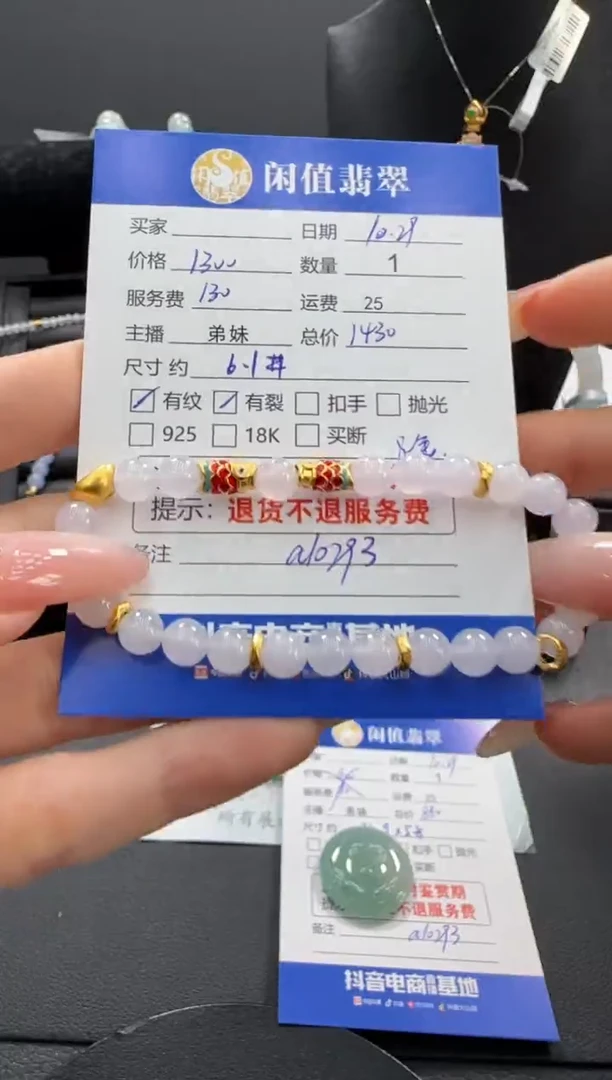 闲值翡翠
买家 日期 10.29
价格 1300 数量 1
服务费 130 运费 25
主播 弟妹 总价 1430
尺寸约 6.1#
有纹 有裂 扣手 抛光
925 18K 买断
提示：退货不退服务费
备注 a10293
抖音电商 基地
闲值翡翠
数量 1
服务费 运费
主播 弟妹 总价
尺寸约
扣手 抛光
买断
鉴赏期
不退服务费
备注 a10293
抖音电商直播基地